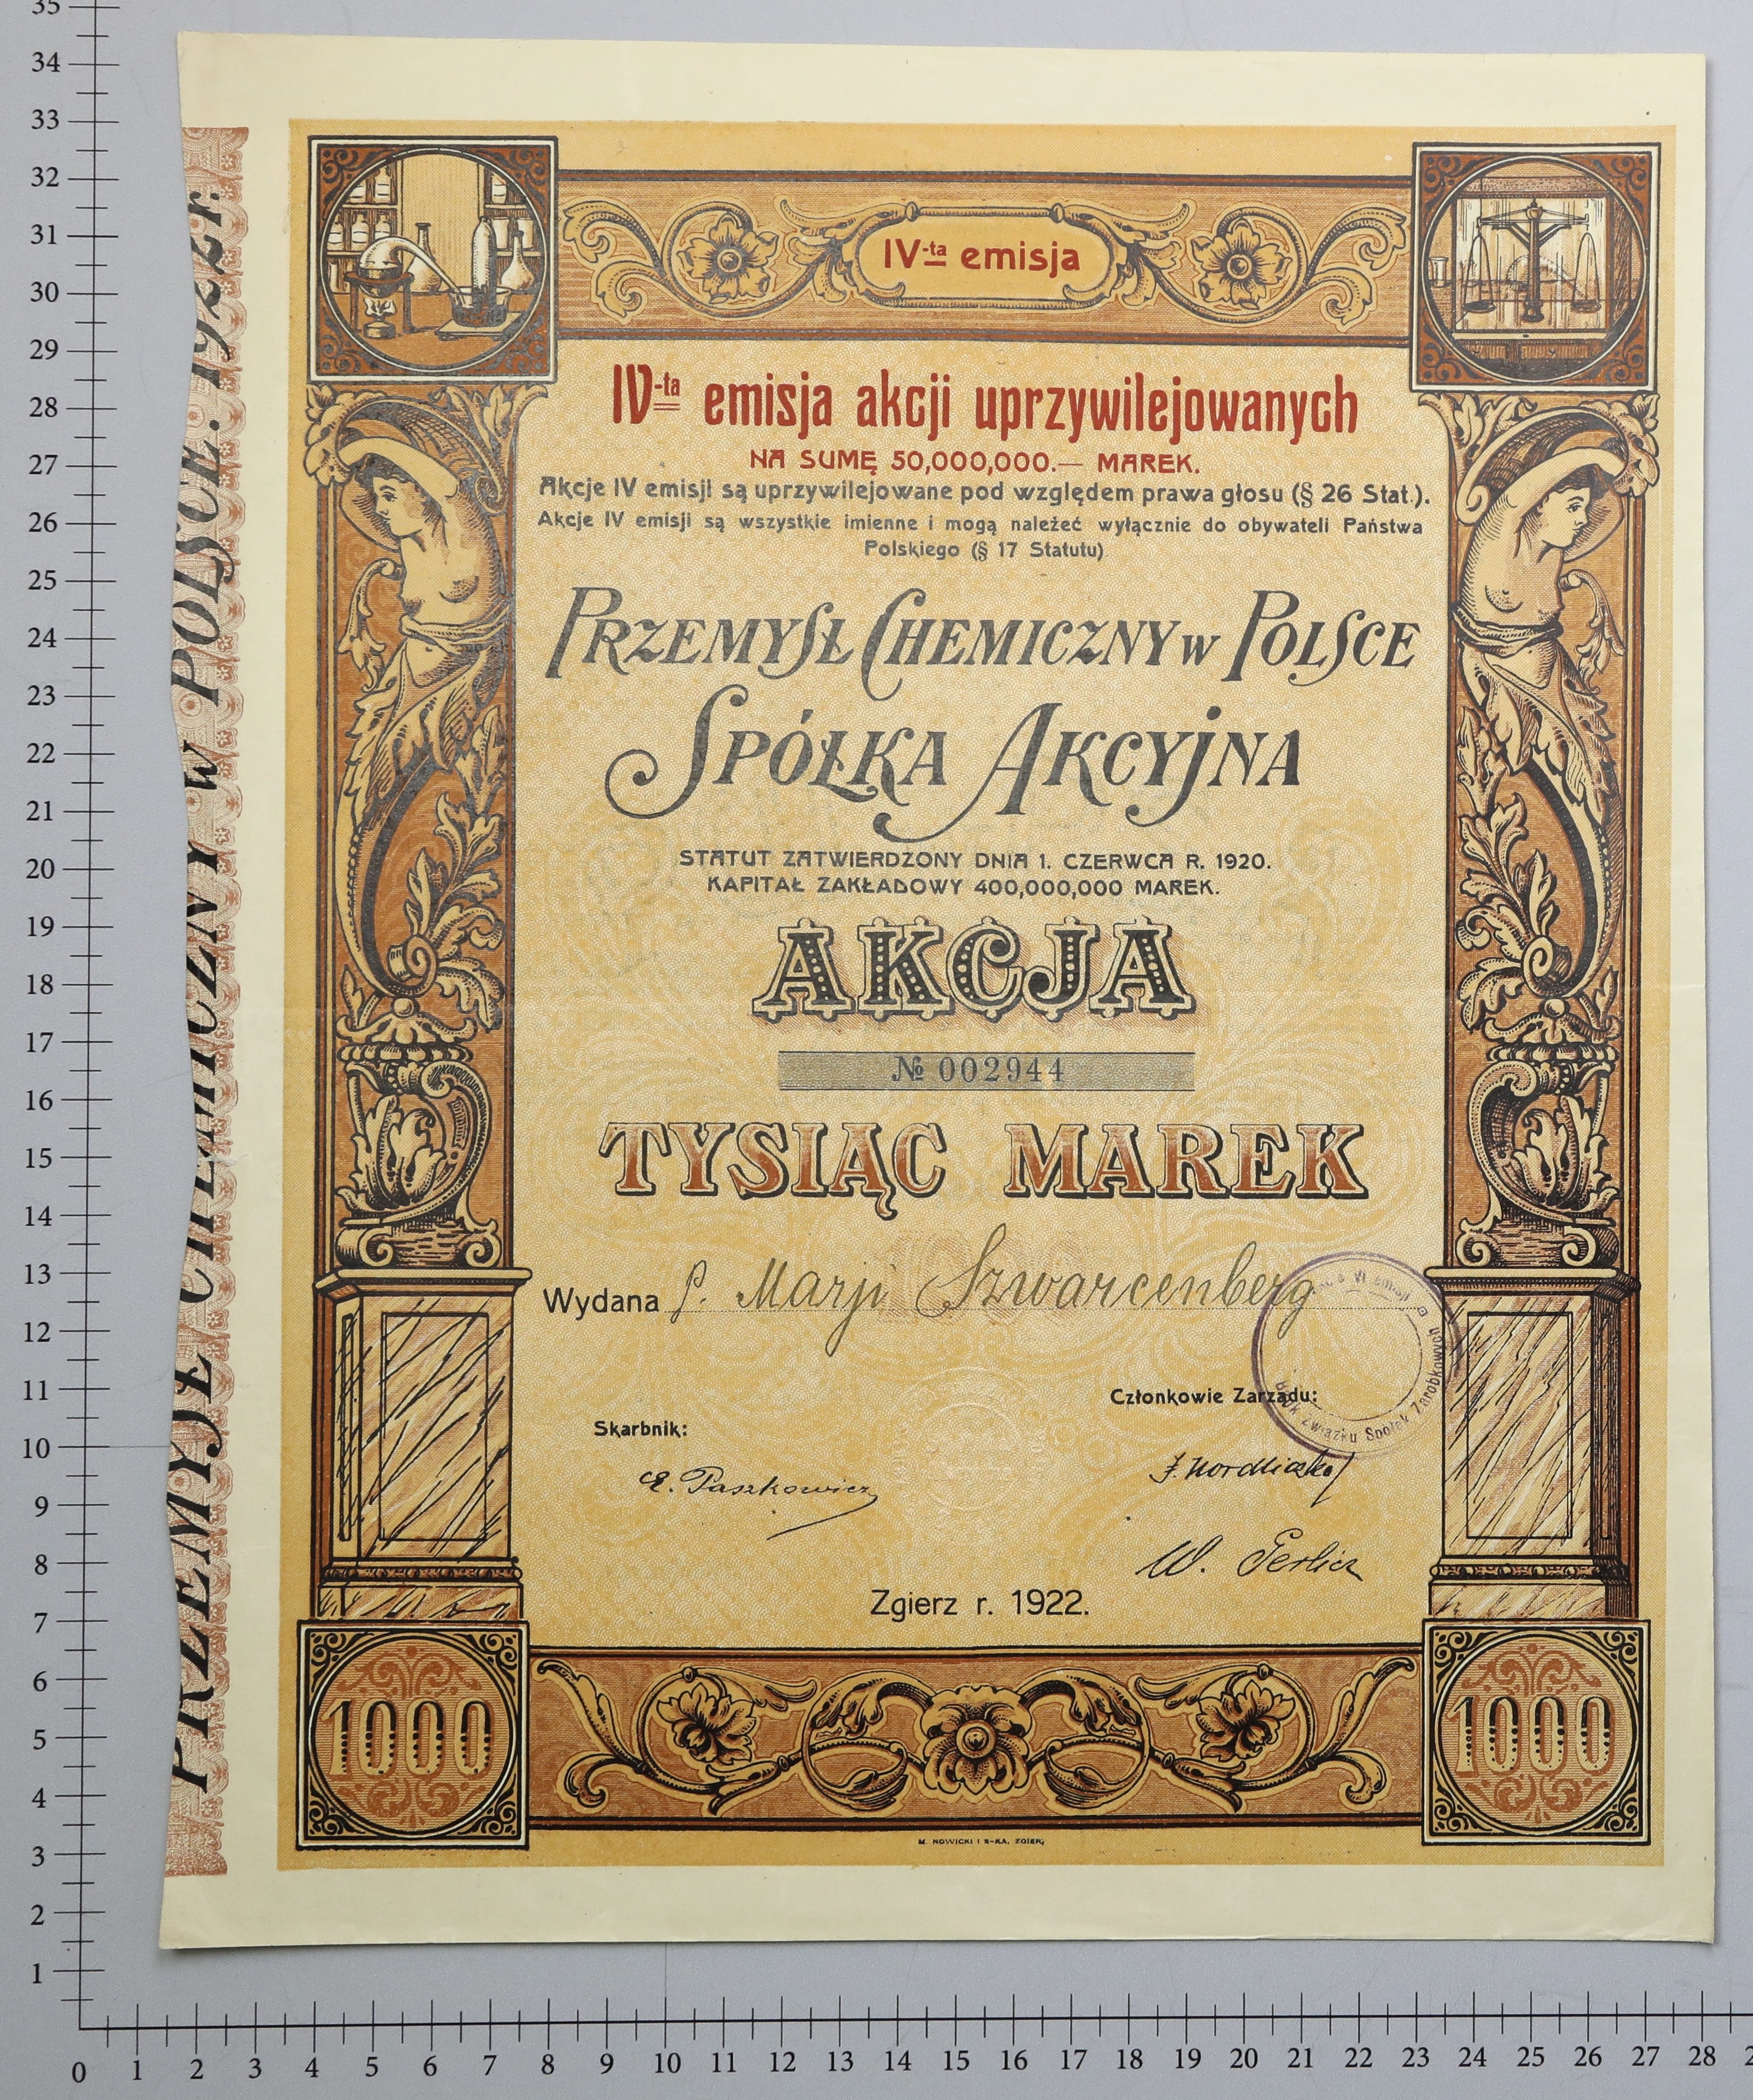 IV-ta emisja
IV-ta emisja akcji uprzywilejowanych
NA SUMĘ 50,000,000.— MAREK.
Akcje IV emisji są uprzywilejowane pod względem prawa głosu (§ 26 Stat.).
Akcje IV emisji są wszystkie imienne i mogą należeć wyłącznie do obywateli Państwa
Polskiego (§ 17 Statutu)
PRZEMYSŁ CHEMICZNY w POLSCE
SPÓŁKA AKCYJNA
STATUT ZATWIERDZONY DNIA 1. CZERWCA R. 1920.
KAPITAŁ ZAKŁADOWY 400,000,000 MAREK.
AKCJA
№ 002944
TYSIĄC MAREK
Wydana p. Marji Szwarcenberg
VI emisji
Bank Związku Spółek Zarobkowych
Członkowie Zarządu:
Skarbnik:
Paszkowicz
W. Gerlicz
Zgierz r. 1922.
1000
1000
M. NOWICKI I S-KA, ZGIERZ
PRZEMYSŁ CHEMICZNY w POLSCE. 1922 r.
35
34
33
32
31
30
29
28
27
26
25
24
23
22
21
20
19
18
17
16
15
14
13
12
11
10
9
8
7
6
5
4
3
2
1
0 1 2 3 4 5 6 7 8 9 10 11 12 13 14 15 16 17 18 19 20 21 22 23 24 25 26 27 28